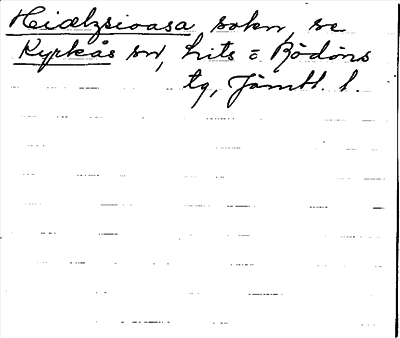 Hiælzsioasa sokn, se
Kyrkås sn, hits = Rödöns
tg, Jämtl. l.